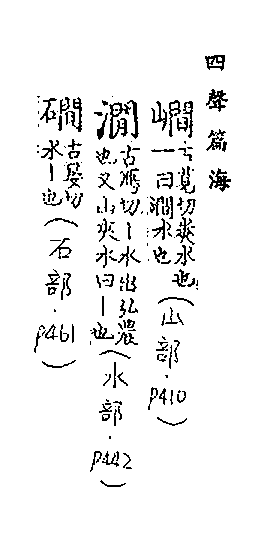 四聲篇海
𡼏古莧切夾水也
一曰澗水也(山部.P410)
澗古鴈切丨水出弘農
也又山夾水曰丨也(水部.P442)
磵古晏切
水丨也(石部.P461)